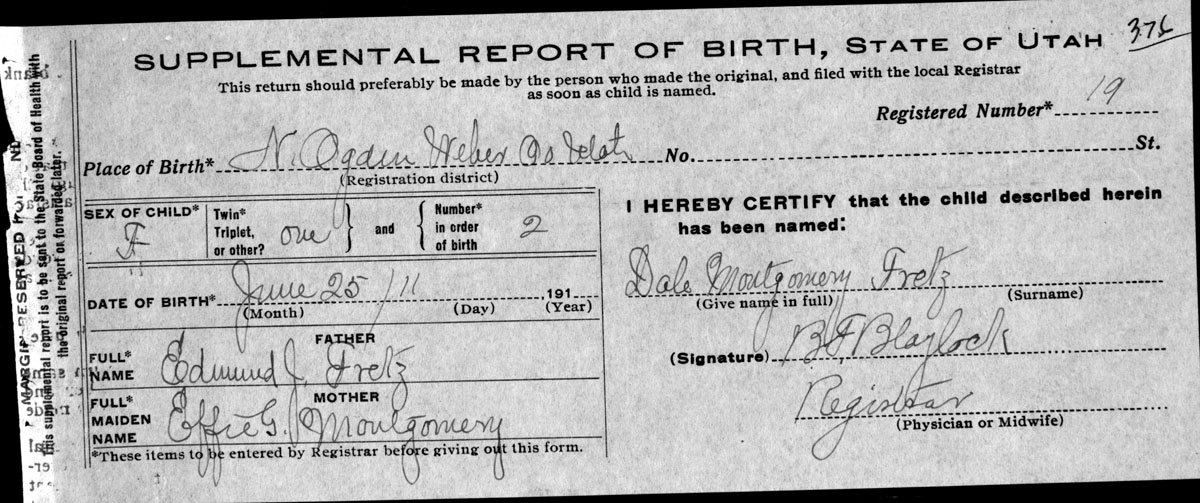 376
SUPPLEMENTAL REPORT OF BIRTH, STATE OF UTAH
This return should preferably be made by the person who made the original, and filed with the local Registrar
as soon as child is named.
Registered Number* 19
Place of Birth* N. Ogden Weber Co Utah No. St.
(Registration district)
SEX OF CHILD* F
Twin* Triplet, or other? one } and { Number* in order of birth 2
DATE OF BIRTH* June 25 / 11 , 191
(Month) (Day) (Year)
FATHER
FULL* NAME Edmund J. Fretz
MOTHER
FULL* MAIDEN NAME Effie G. Montgomery
*These items to be entered by Registrar before giving out this form.
I HEREBY CERTIFY that the child described herein
has been named:
Dale Montgomery Fretz
(Give name in full) (Surname)
(Signature) B F Blaylock
Registrar
(Physician or Midwife)
MARGIN RESERVED FOR
this supplemental report is to be sent to the State Board of Health with
the original report or forwarded later.